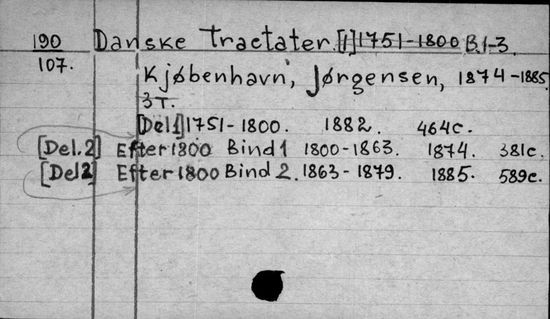 190 Danske Tractater. [1] 1751-1800 B.1-3.
107. Kjøbenhavn, Jørgensen, 1874-1885
3T.
[Del 1] 1751-1800. 1882. 464c.
[Del.2] Efter 1800 Bind 1 1800-1863. 1874. 381c.
[Del 2] Efter 1800 Bind 2. 1863-1879. 1885. 589c.